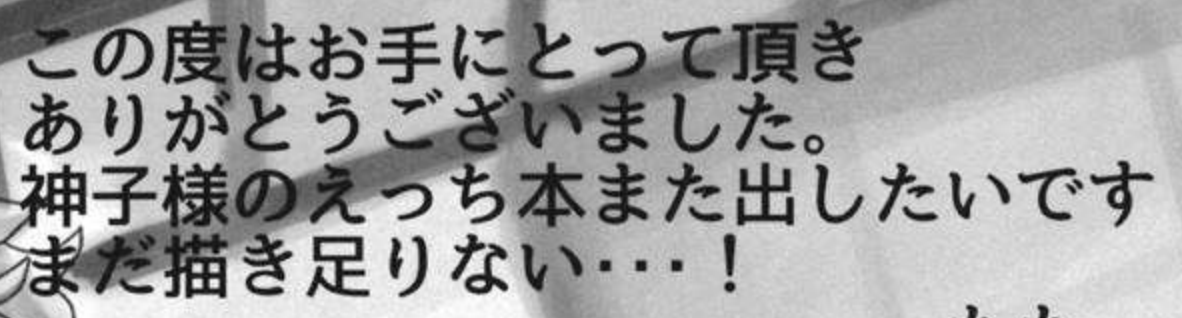 この度はお手にとって頂き
ありがとうございました。
神子様のえっち本また出したいです
まだ描き足りない・・・！